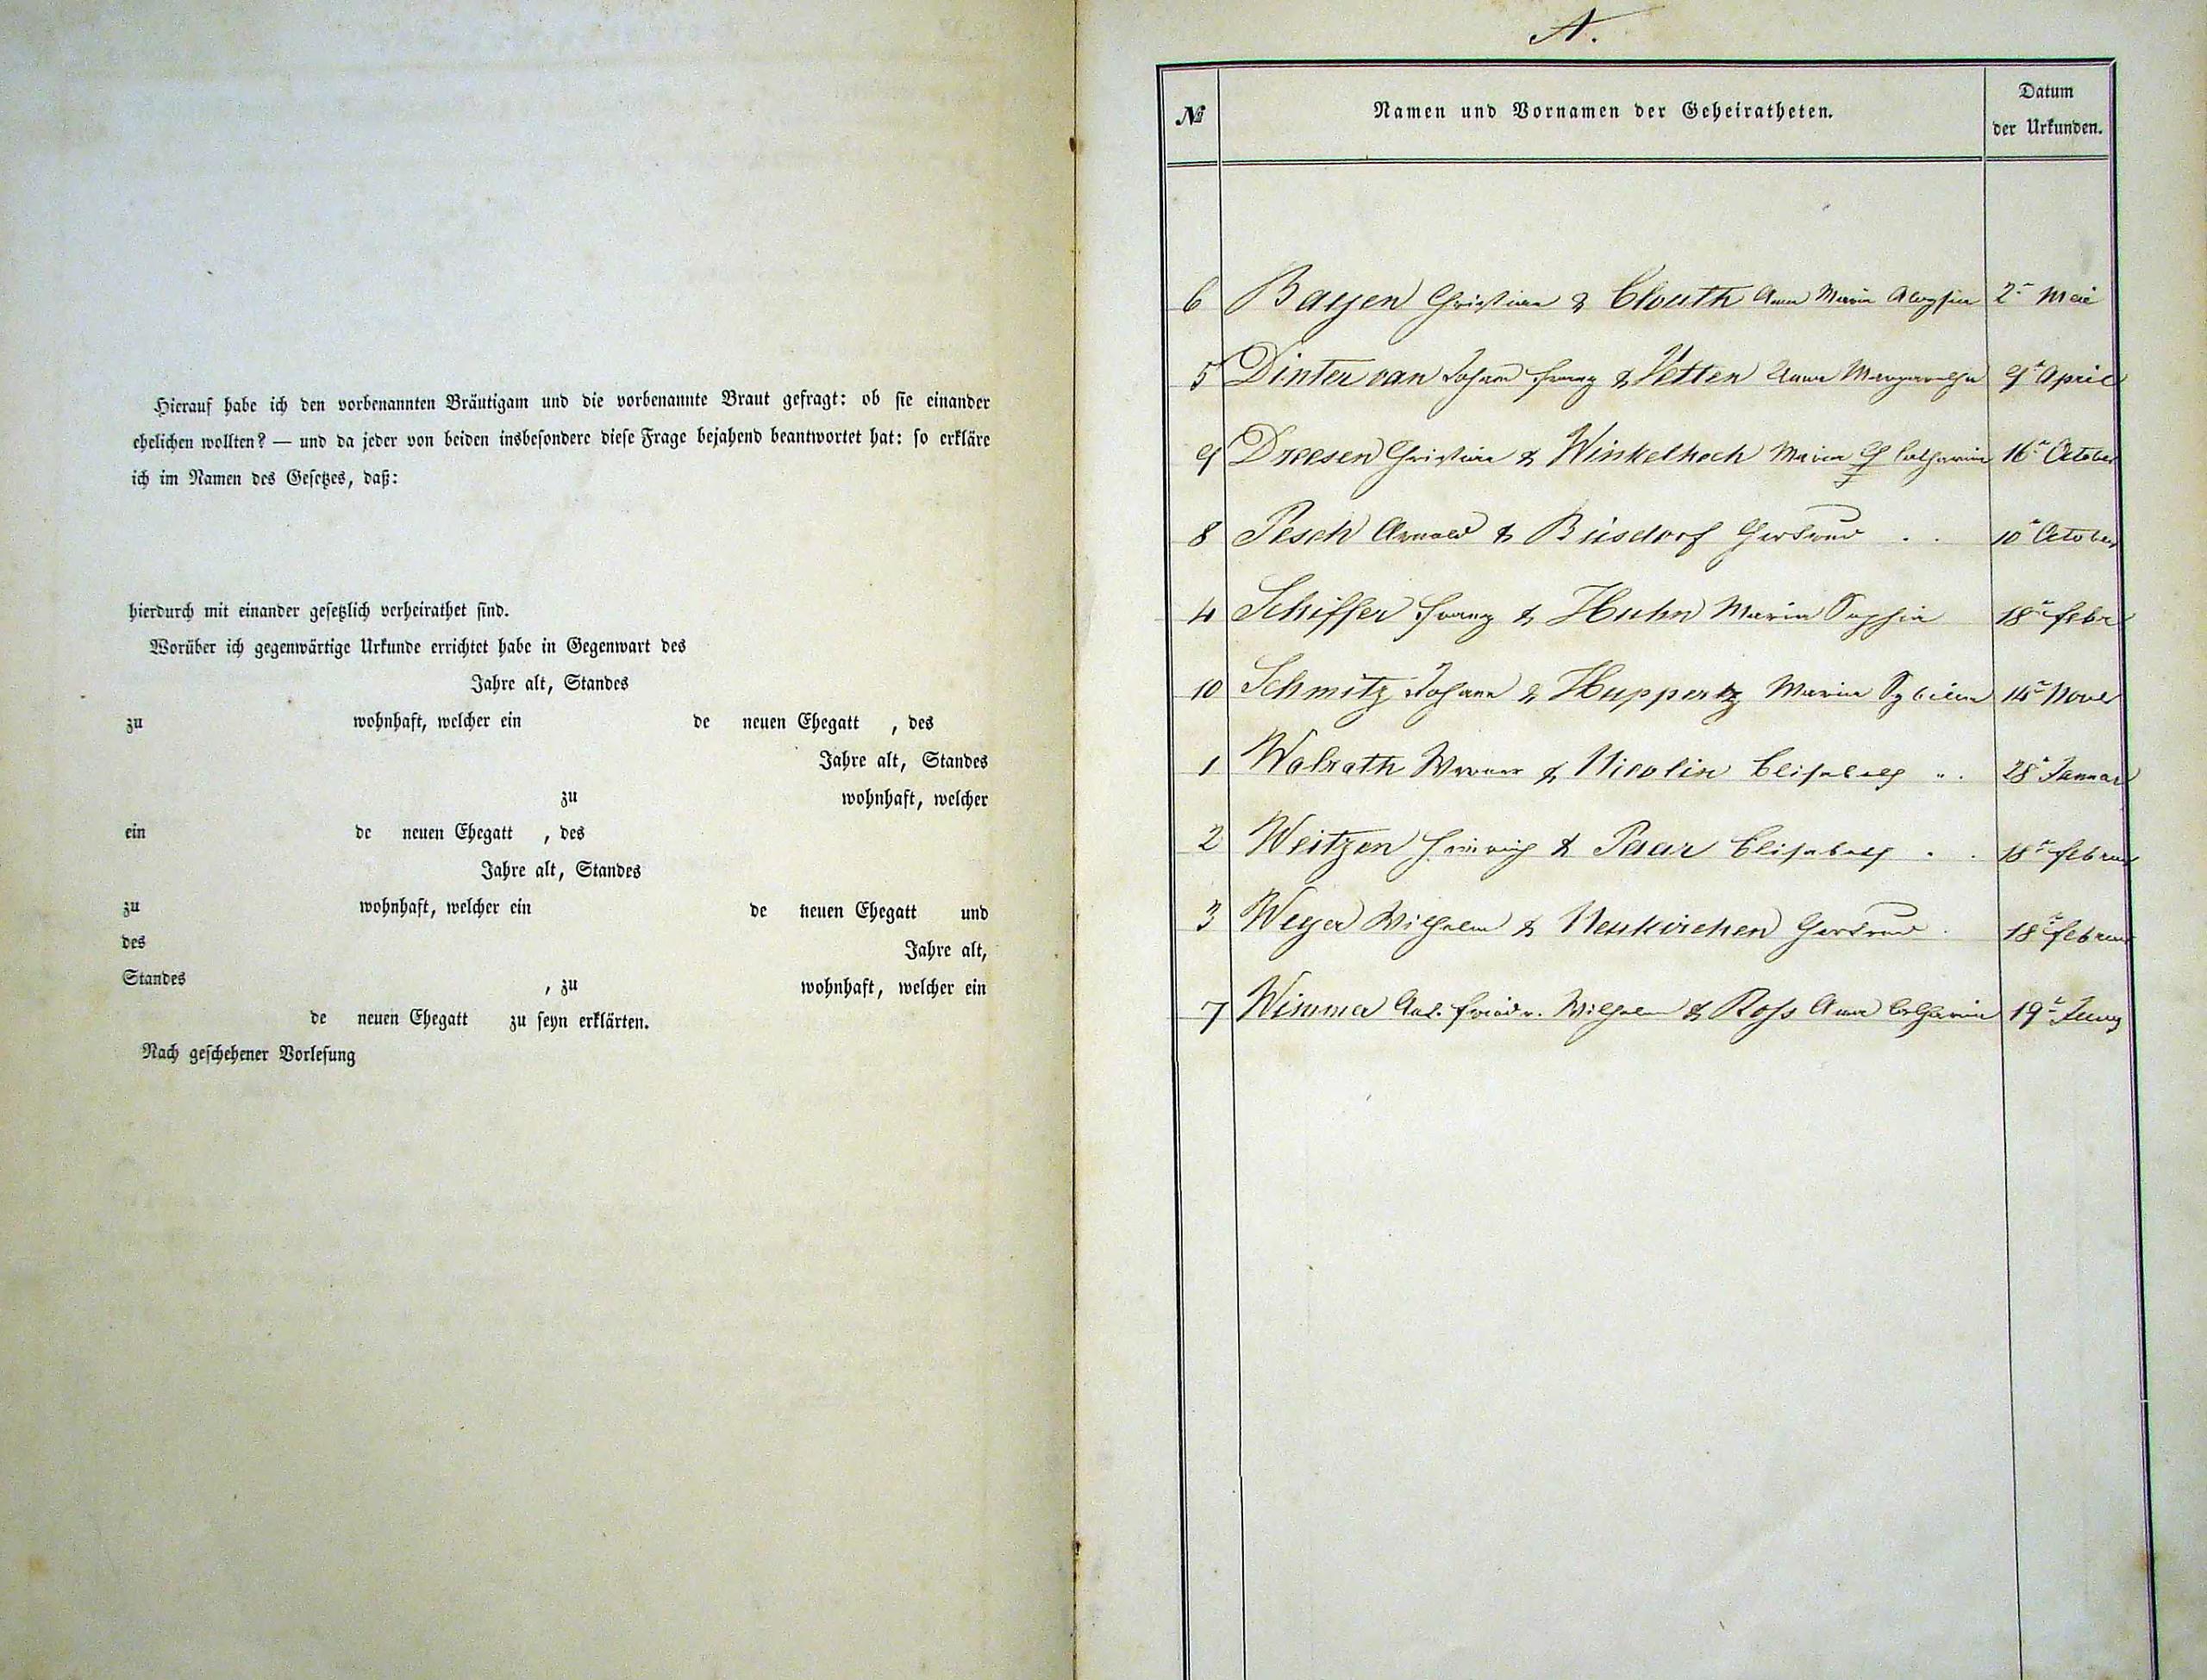 Hierauf habe ich den vorbenannten Bräutigam und die vorbenannte Braut gefragt: ob sie einander
ehelichen wollten? — und da jeder von beiden insbesondere diese Frage bejahend beantwortet hat: so erkläre
ich im Namen des Gesetzes, daß:
hierdurch mit einander gesetzlich verheirathet sind.
Worüber ich gegenwärtige Urkunde errichtet habe in Gegenwart des
Jahre alt, Standes
zu wohnhaft, welcher ein de neuen Ehegatt , des
Jahre alt, Standes
zu wohnhaft, welcher
ein de neuen Ehegatt , des
Jahre alt, Standes
zu wohnhaft, welcher ein de neuen Ehegatt und
des Jahre alt,
Standes , zu wohnhaft, welcher ein
de neuen Ehegatt zu seyn erklärten.
Nach geschehener Vorlesung
A.
№ Namen und Vornamen der Geheiratheten. Datum
der Urkunden.
6 Bayen Christian & Clouth Anna Maria Aloysia 2n Mai
5 Dinter van Johann Franz & Vetten Anna Margaretha 9n April
9 Dreesen Christian & Winkelhoch Maria Catharina 16n October
8 Pesch Arnold & Büsdorf Gertrud . . 10n October
4 Schiffer Franz & Huhn Maria Sophia 18n Febr
10 Schmitz Johann & Huppertz Maria Sybilla 14n Novb
1 Walrath Werner & Nicolin Elisabeth . . 28n Januar
2 Weitzen Heinrich & Paar Elisabeth . . 18n Februar
3 Weyer Wilhelm & Neukirchen Gertrud . 18n Februar
7 Wimmer Friedr. Wilhelm & Roß Anna Catharina 19n Juny